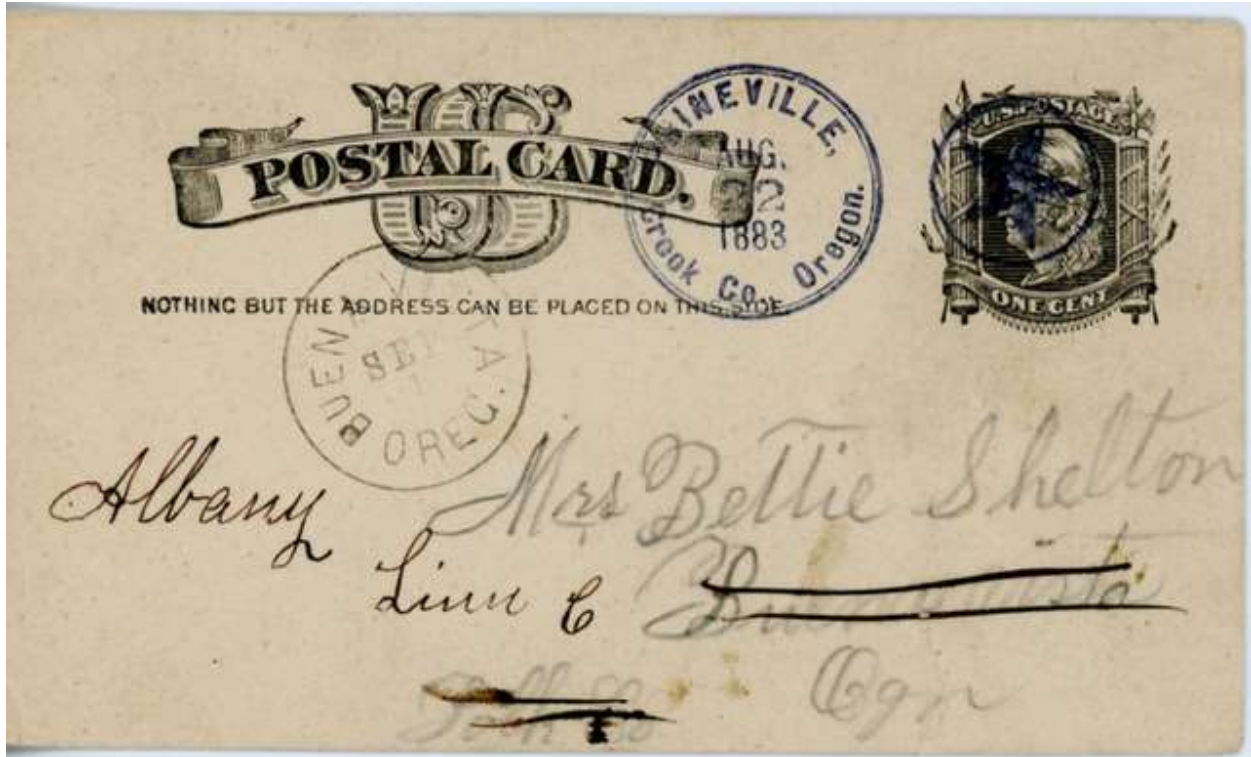 US
POSTAL CARD.
NOTHING BUT THE ADDRESS CAN BE PLACED ON THIS SIDE.
INEVILLE,
AUG.
22
1883
Crook Co., Oregon.
U.S. POSTAGE
ONE CENT
BUEN VISTA
SEP
1
OREG.
Albany
Mrs Bettie Shelton
Linn C
Buena Vista
Polk Co
Ogn